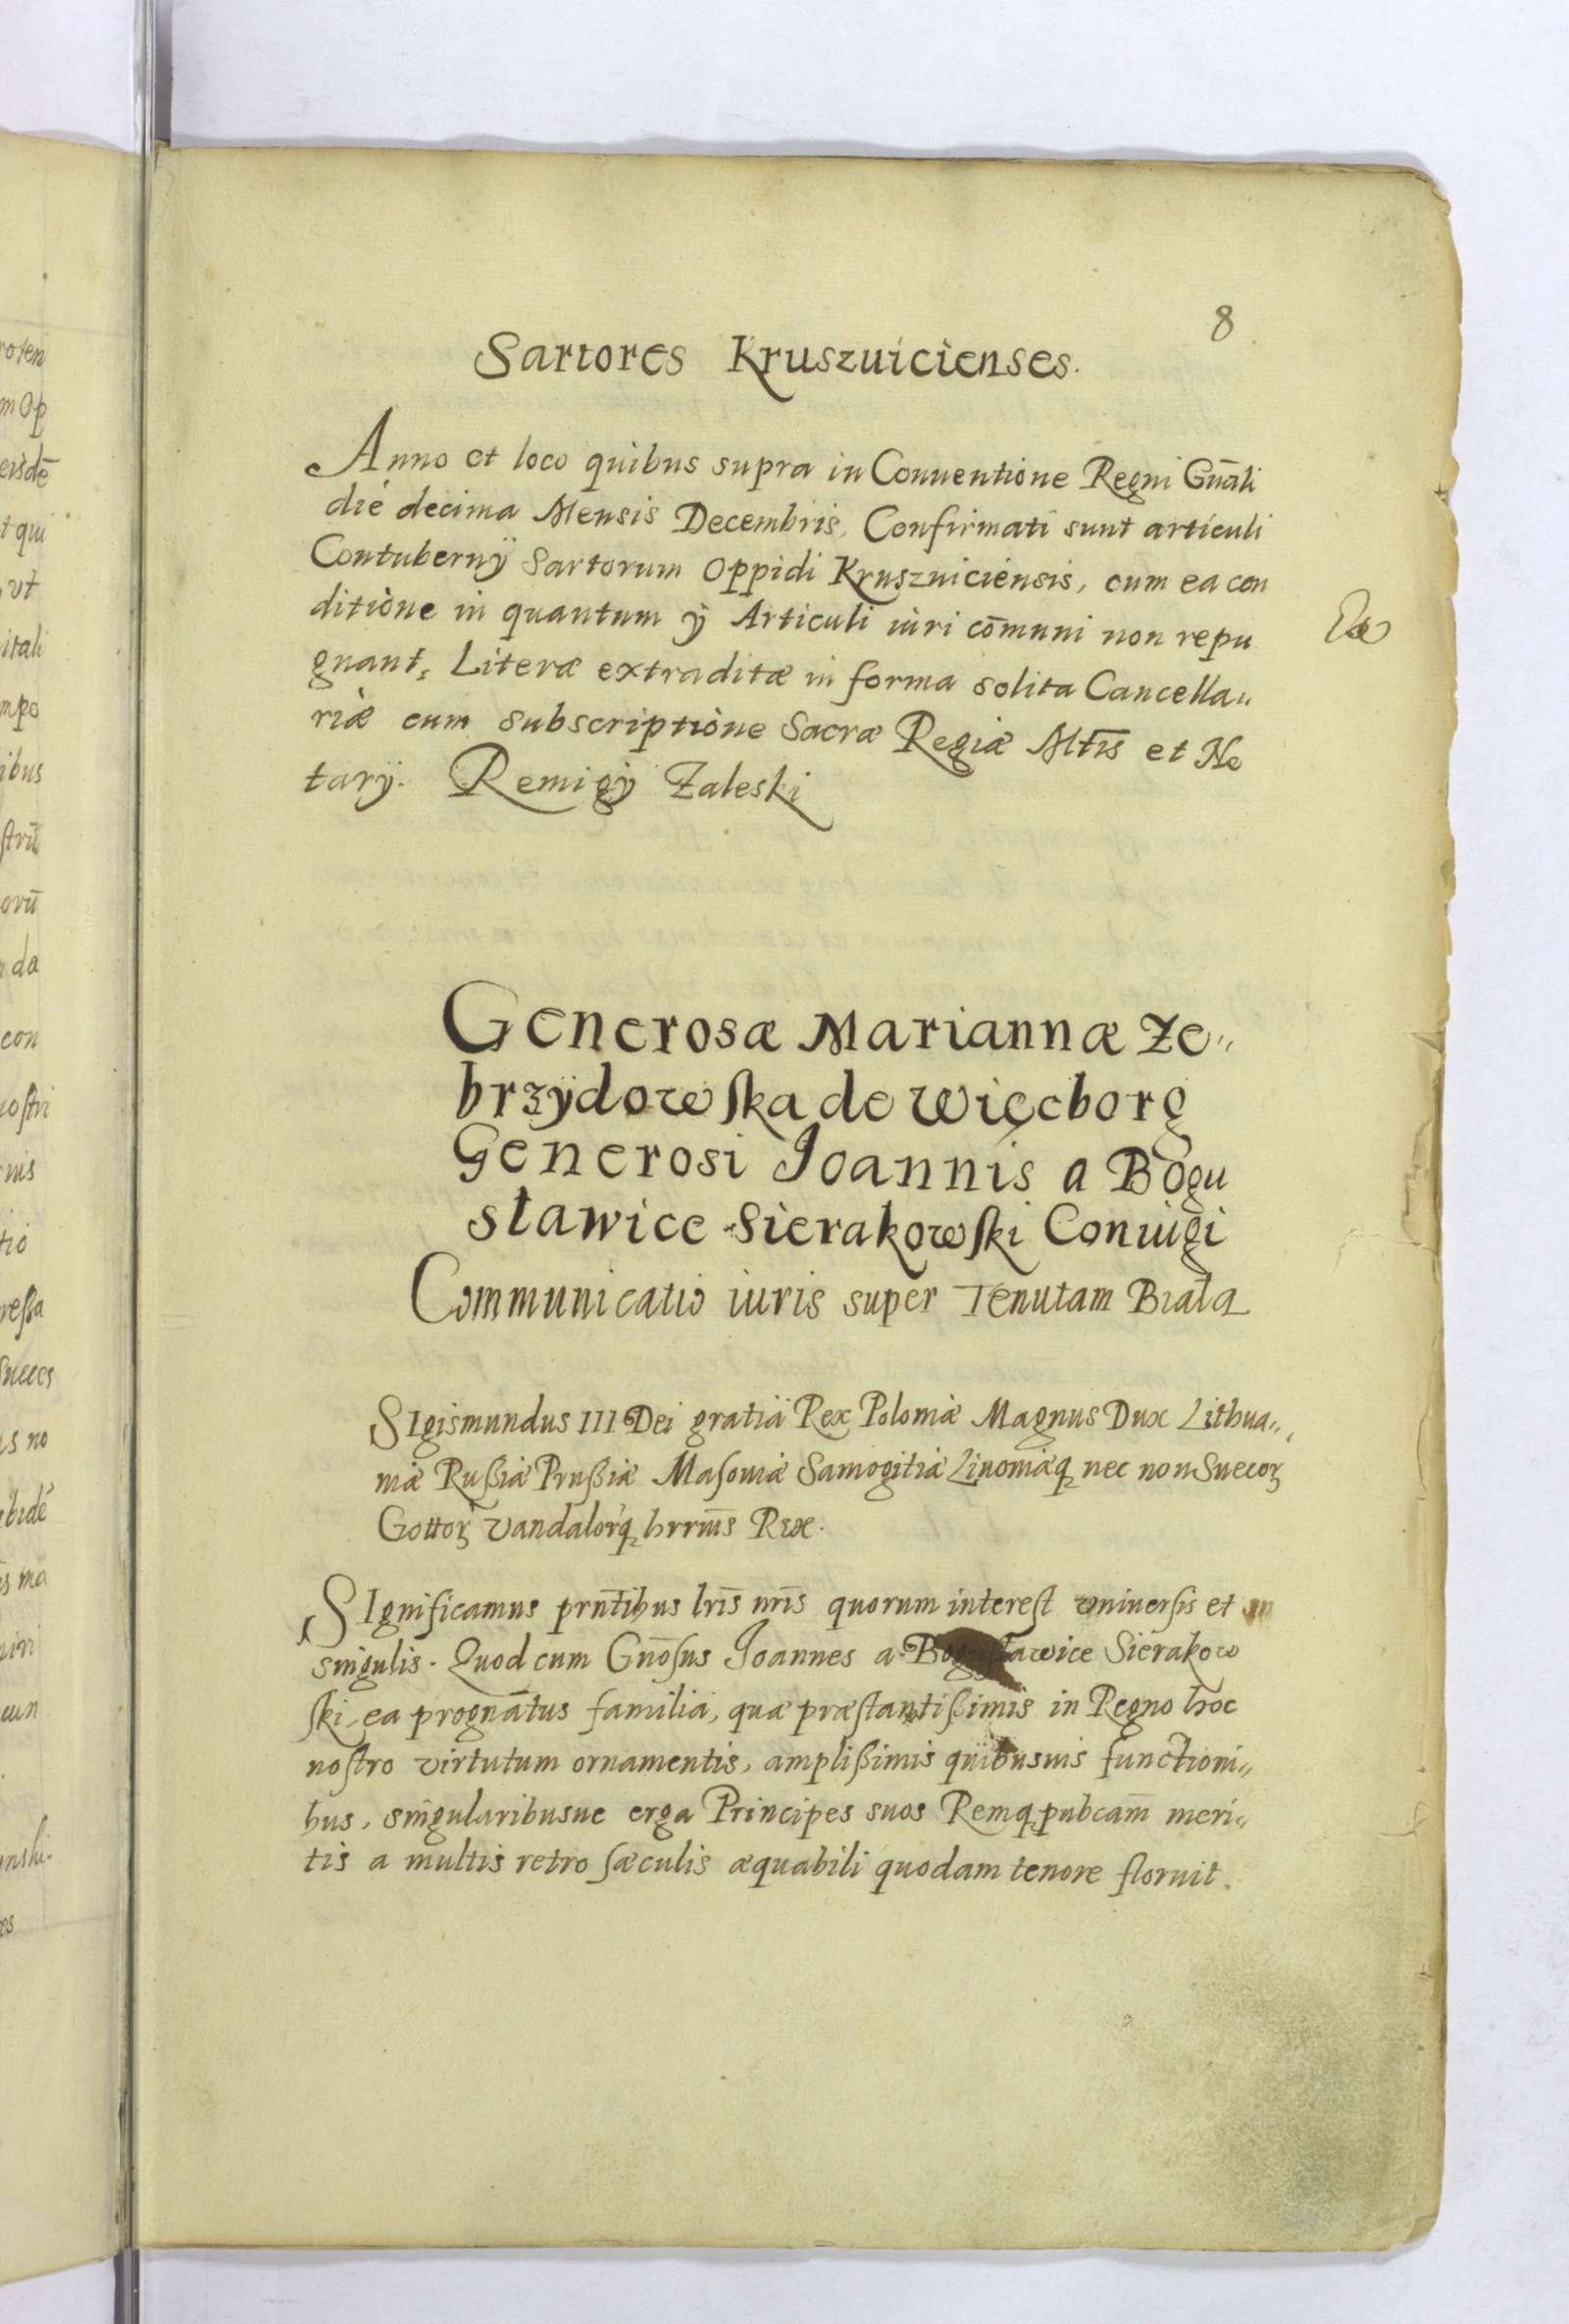 8
Sartores Kruszuicienses.
Anno et loco quibus supra in Conuentione Regni Gnāli
die decima Mensis Decembris, Confirmati sunt articuli
Contubernÿ Sartorum Oppidi Kruszuiciensis, cum ea con
ditione in quantum ÿ Articuli iuri cōmuni non repu
gnant, Literæ extraditæ in forma solita Cancella„
riæ cum subscriptione Sacræ Regiæ Mtīs et No
tarÿ. Remigÿ Zaleski
Generosæ Mariannæ Ze„
brzÿdowſka de Więcborg
Generosi Joannis a Bogu
sławice Sierakowſki Coniugi
Communicatio iuris super Tenutam Biała
SIgismundus III Dei gratia Rex Poloniæ Magnus Dux Lithua„
niæ Rußiæ Prußiæ Maſouiæ Samogitiæ Liuoniæq̨ nec non Suecoꝝ
Gottoꝝ Vandalorq̨ hrrius̄ Rex.
SIgnificamus prn̄tibus lrīs nrīs quorum intereſt vniuerſis et
singulis. Quod cum Gnōſus Joannes a Bogusławice Sierakow
ſki ea prognatus familia, quæ præſtantißimis in Regno hoc
noſtro virtutum ornamentis, amplißimis quibusuis functioni„
bus, singularibusue erga Principes suos Remq̨ pubcam̄ meri„
tis a multis retro ſæculis æquabili quodam tenore floruit.